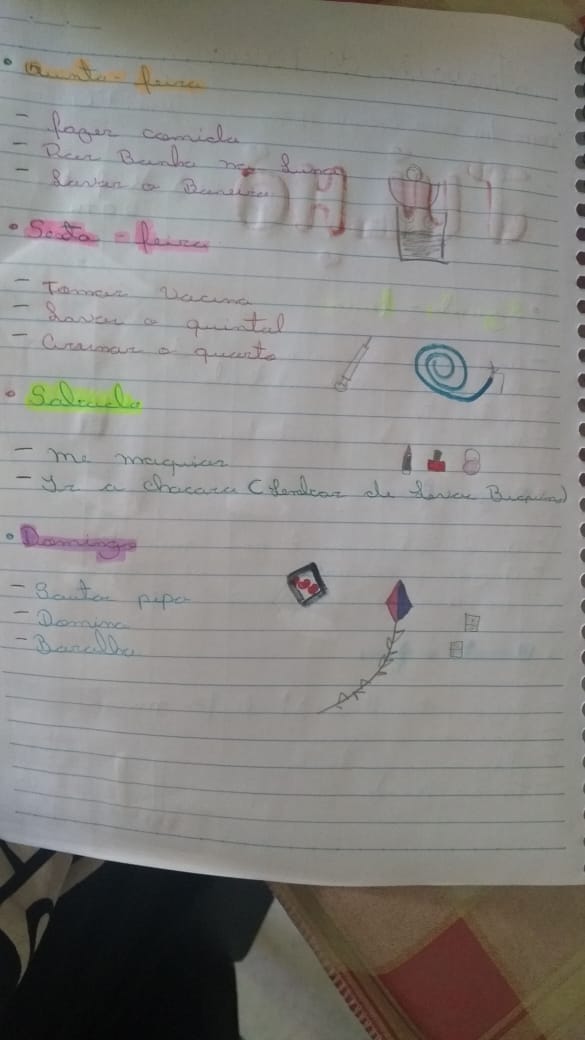 • Quinta-feira
- fazer comida
- Dar Banho no
- Lavar o Banheiro
• Sexta-feira
- Tomar Vacina
- Lavar o quintal
- Arrumar o quarto
• Sabado
- me maquiar
- Ir a chacara (Lembrar de levar
• Domingo
- Soutar pipa
- Domino
- Baralho